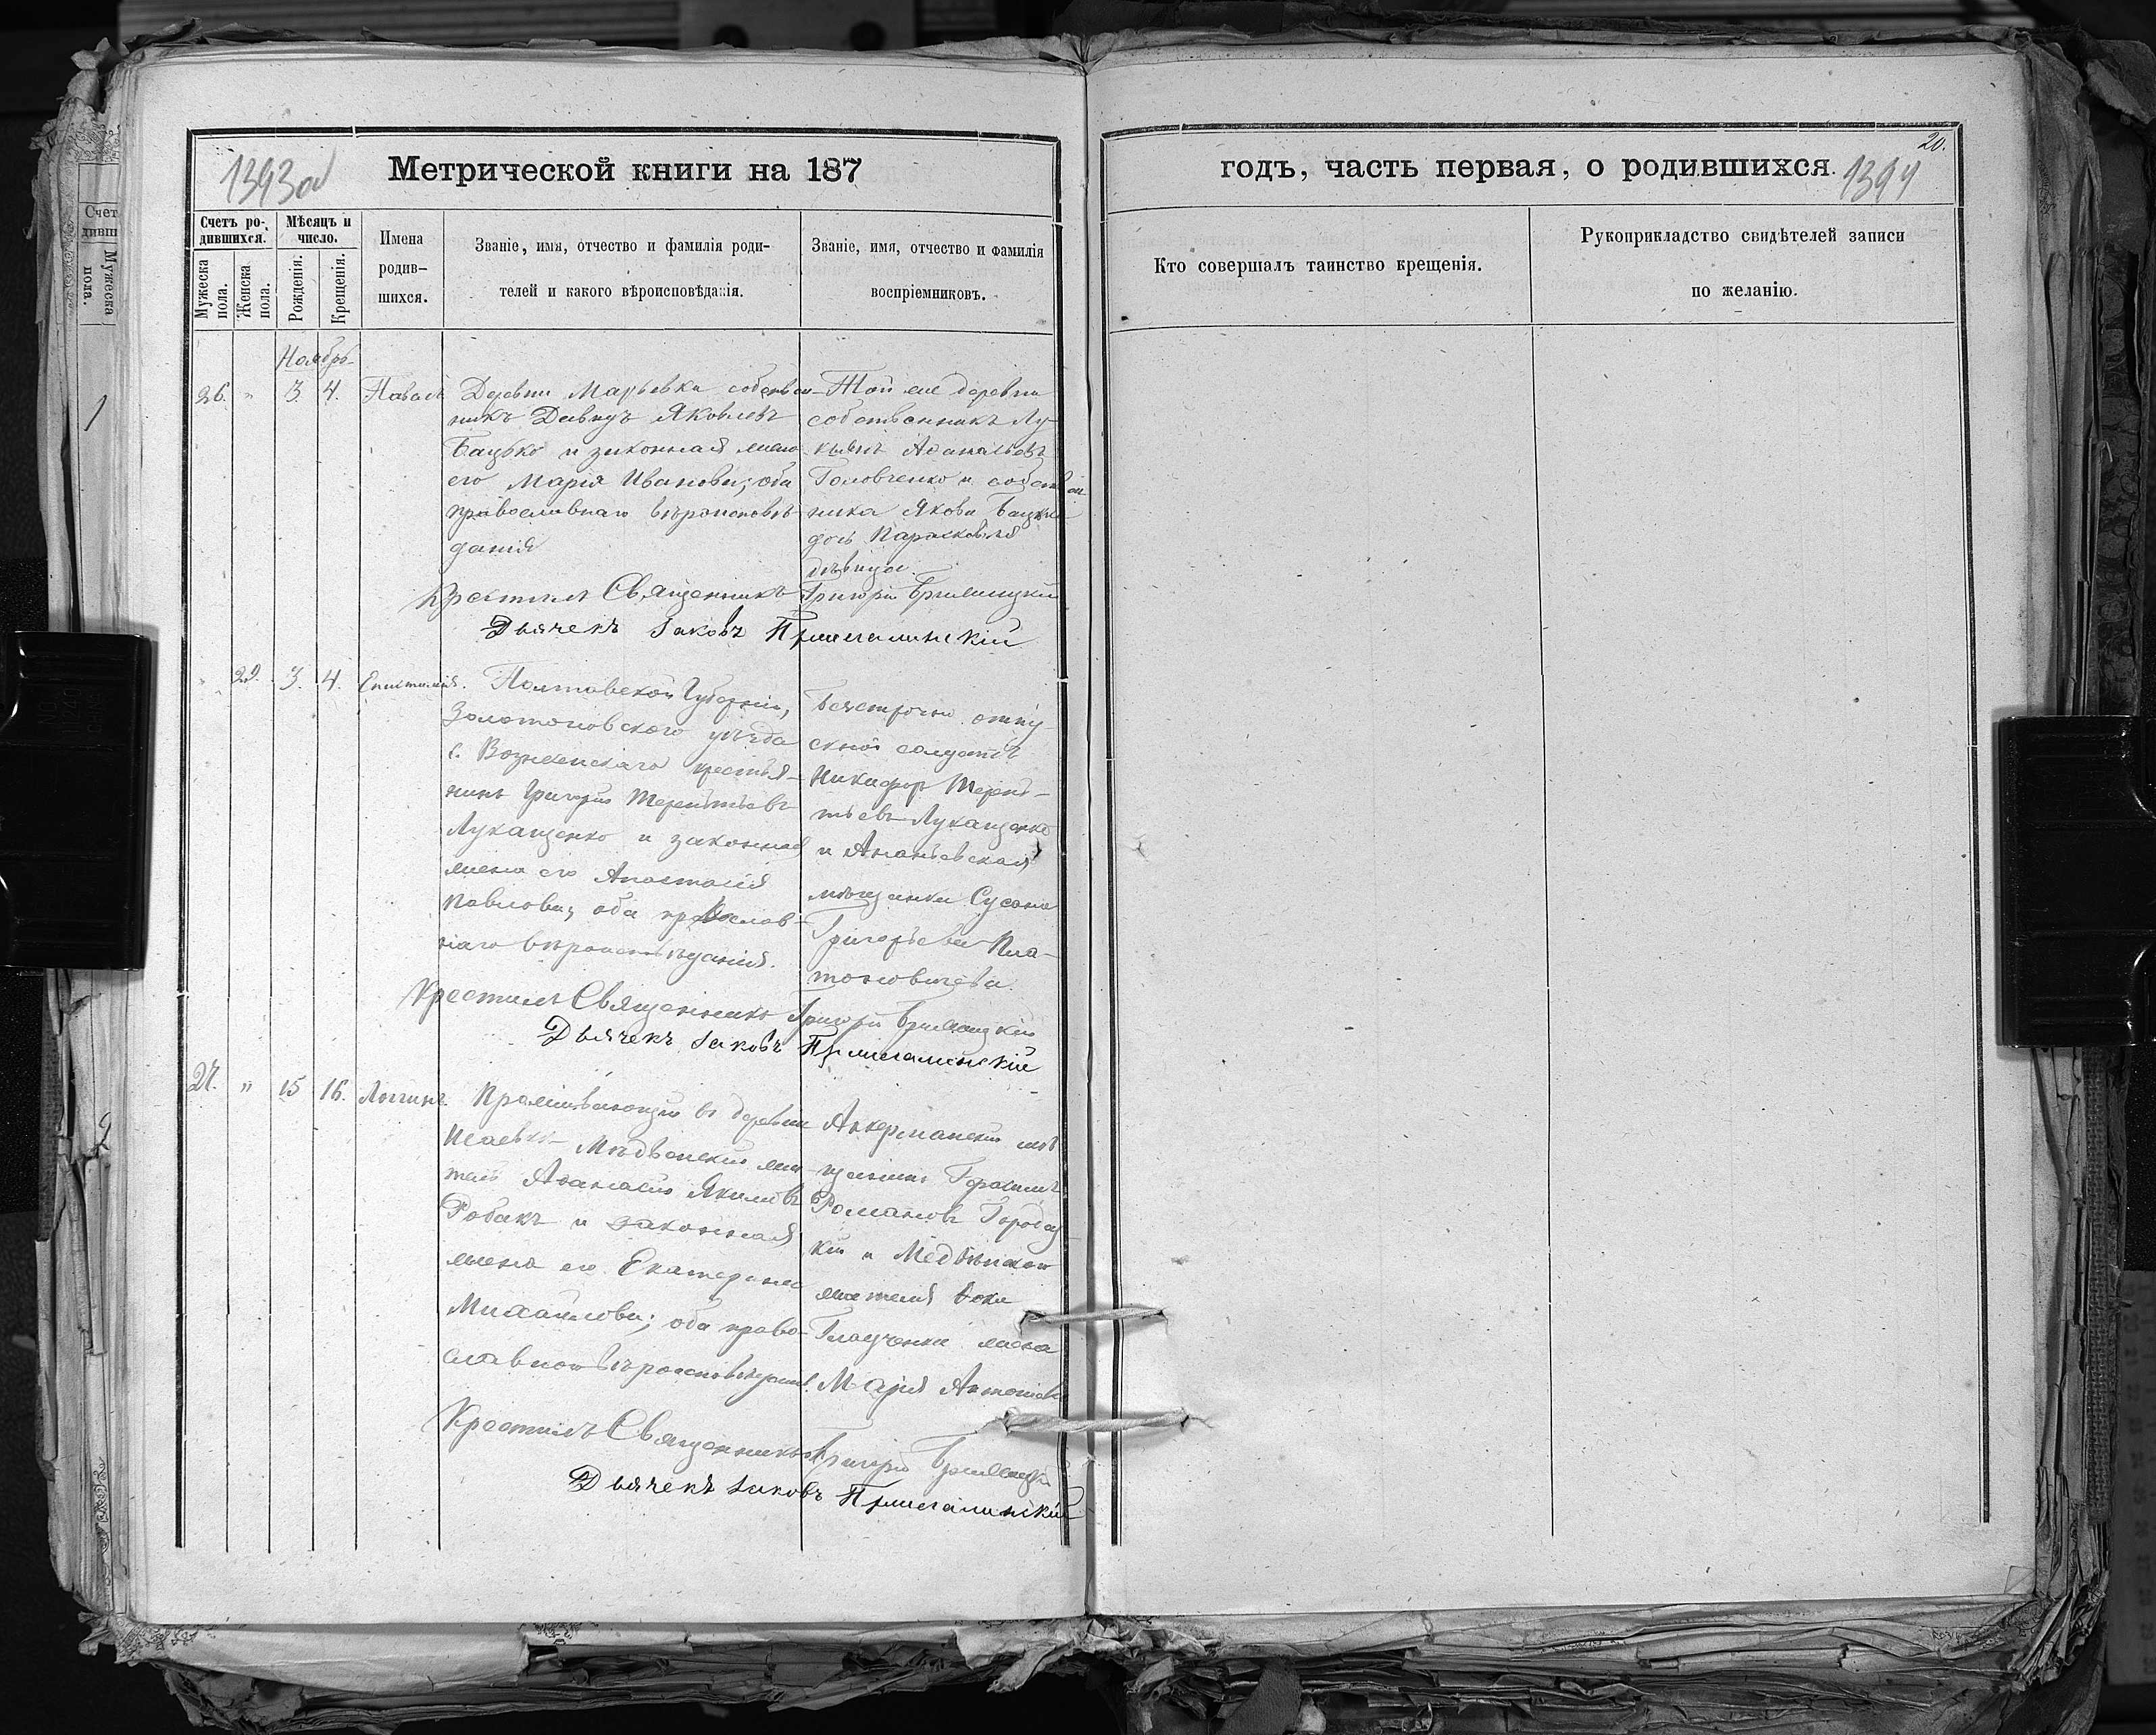 20.
1393 об
Метрической книги на 187
годъ, часть первая, о родившихся.
1394
Счетъ ро-
дившихся.
Мѣсяцъ и
число.
Мужеска
пола.
Женска
пола.
Рожденія.
Крещенія.
Имена
родив-
шихся.
Званіе, имя, отчество и фамилія роди-
телей и какого вѣроисповѣданія.
Званіе, имя, отчество и фамилія
воспріемниковъ.
Кто совершалъ таинство крещенія.
Рукоприкладство свидѣтелей записи
по желанію.
Счет
дивш
Мужеска
пола.
1
2
Ноябрь
26. " 3. 4. Павелъ
Деревни Марьевки собствен-
никъ Давидъ Яковлевъ
Бацько и законная жена
его Марія Иванова; оба
православнаго вѣроисповѣ-
данія
Той же деревни
собственникъ Лу-
кьянъ Аѳанасьевъ
Головченко и собствен-
ника Якова Бацька
дочь Параскевія
дѣвица.
Крестилъ Священникъ Григорій
Дьячекъ Іаковъ
" 29. 3. 4. Епистимія.
Полтавской Губерніи,
Золотоновского уѣзда
с. Вознесенскаго крестья-
нинъ Григорій Терентьевъ
Лукащенко и законная
жена его Анастасія
Павлова; оба православ-
наго вѣроисповѣданія.
Безсрочно отпу
скной солдатъ
Никифор Терен-
тьевъ Лукащенко
и Ананьевская
мѣщанка Сусана
Григорьева Пла-
тоновичева.
Крестилъ Священникъ Григорій
Дьячекъ Іаковъ
27. " 15 16. Логгинъ.
Проживающій въ деревни
Исаевкѣ Мѣдвенскій жи-
тель Аѳанасій Якимовъ
Робакъ и законная
жена его Екатерина
Михайлова; оба право-
славного вѣроисповѣданія.
Аккерманскій мѣ
щанинъ Герасимъ
Романовъ Городец
кій и Медвѣнского
жителя Фоки
жена
Марія Антонова
Крестилъ Священникъ Григорій
Дьячекъ Іаковъ